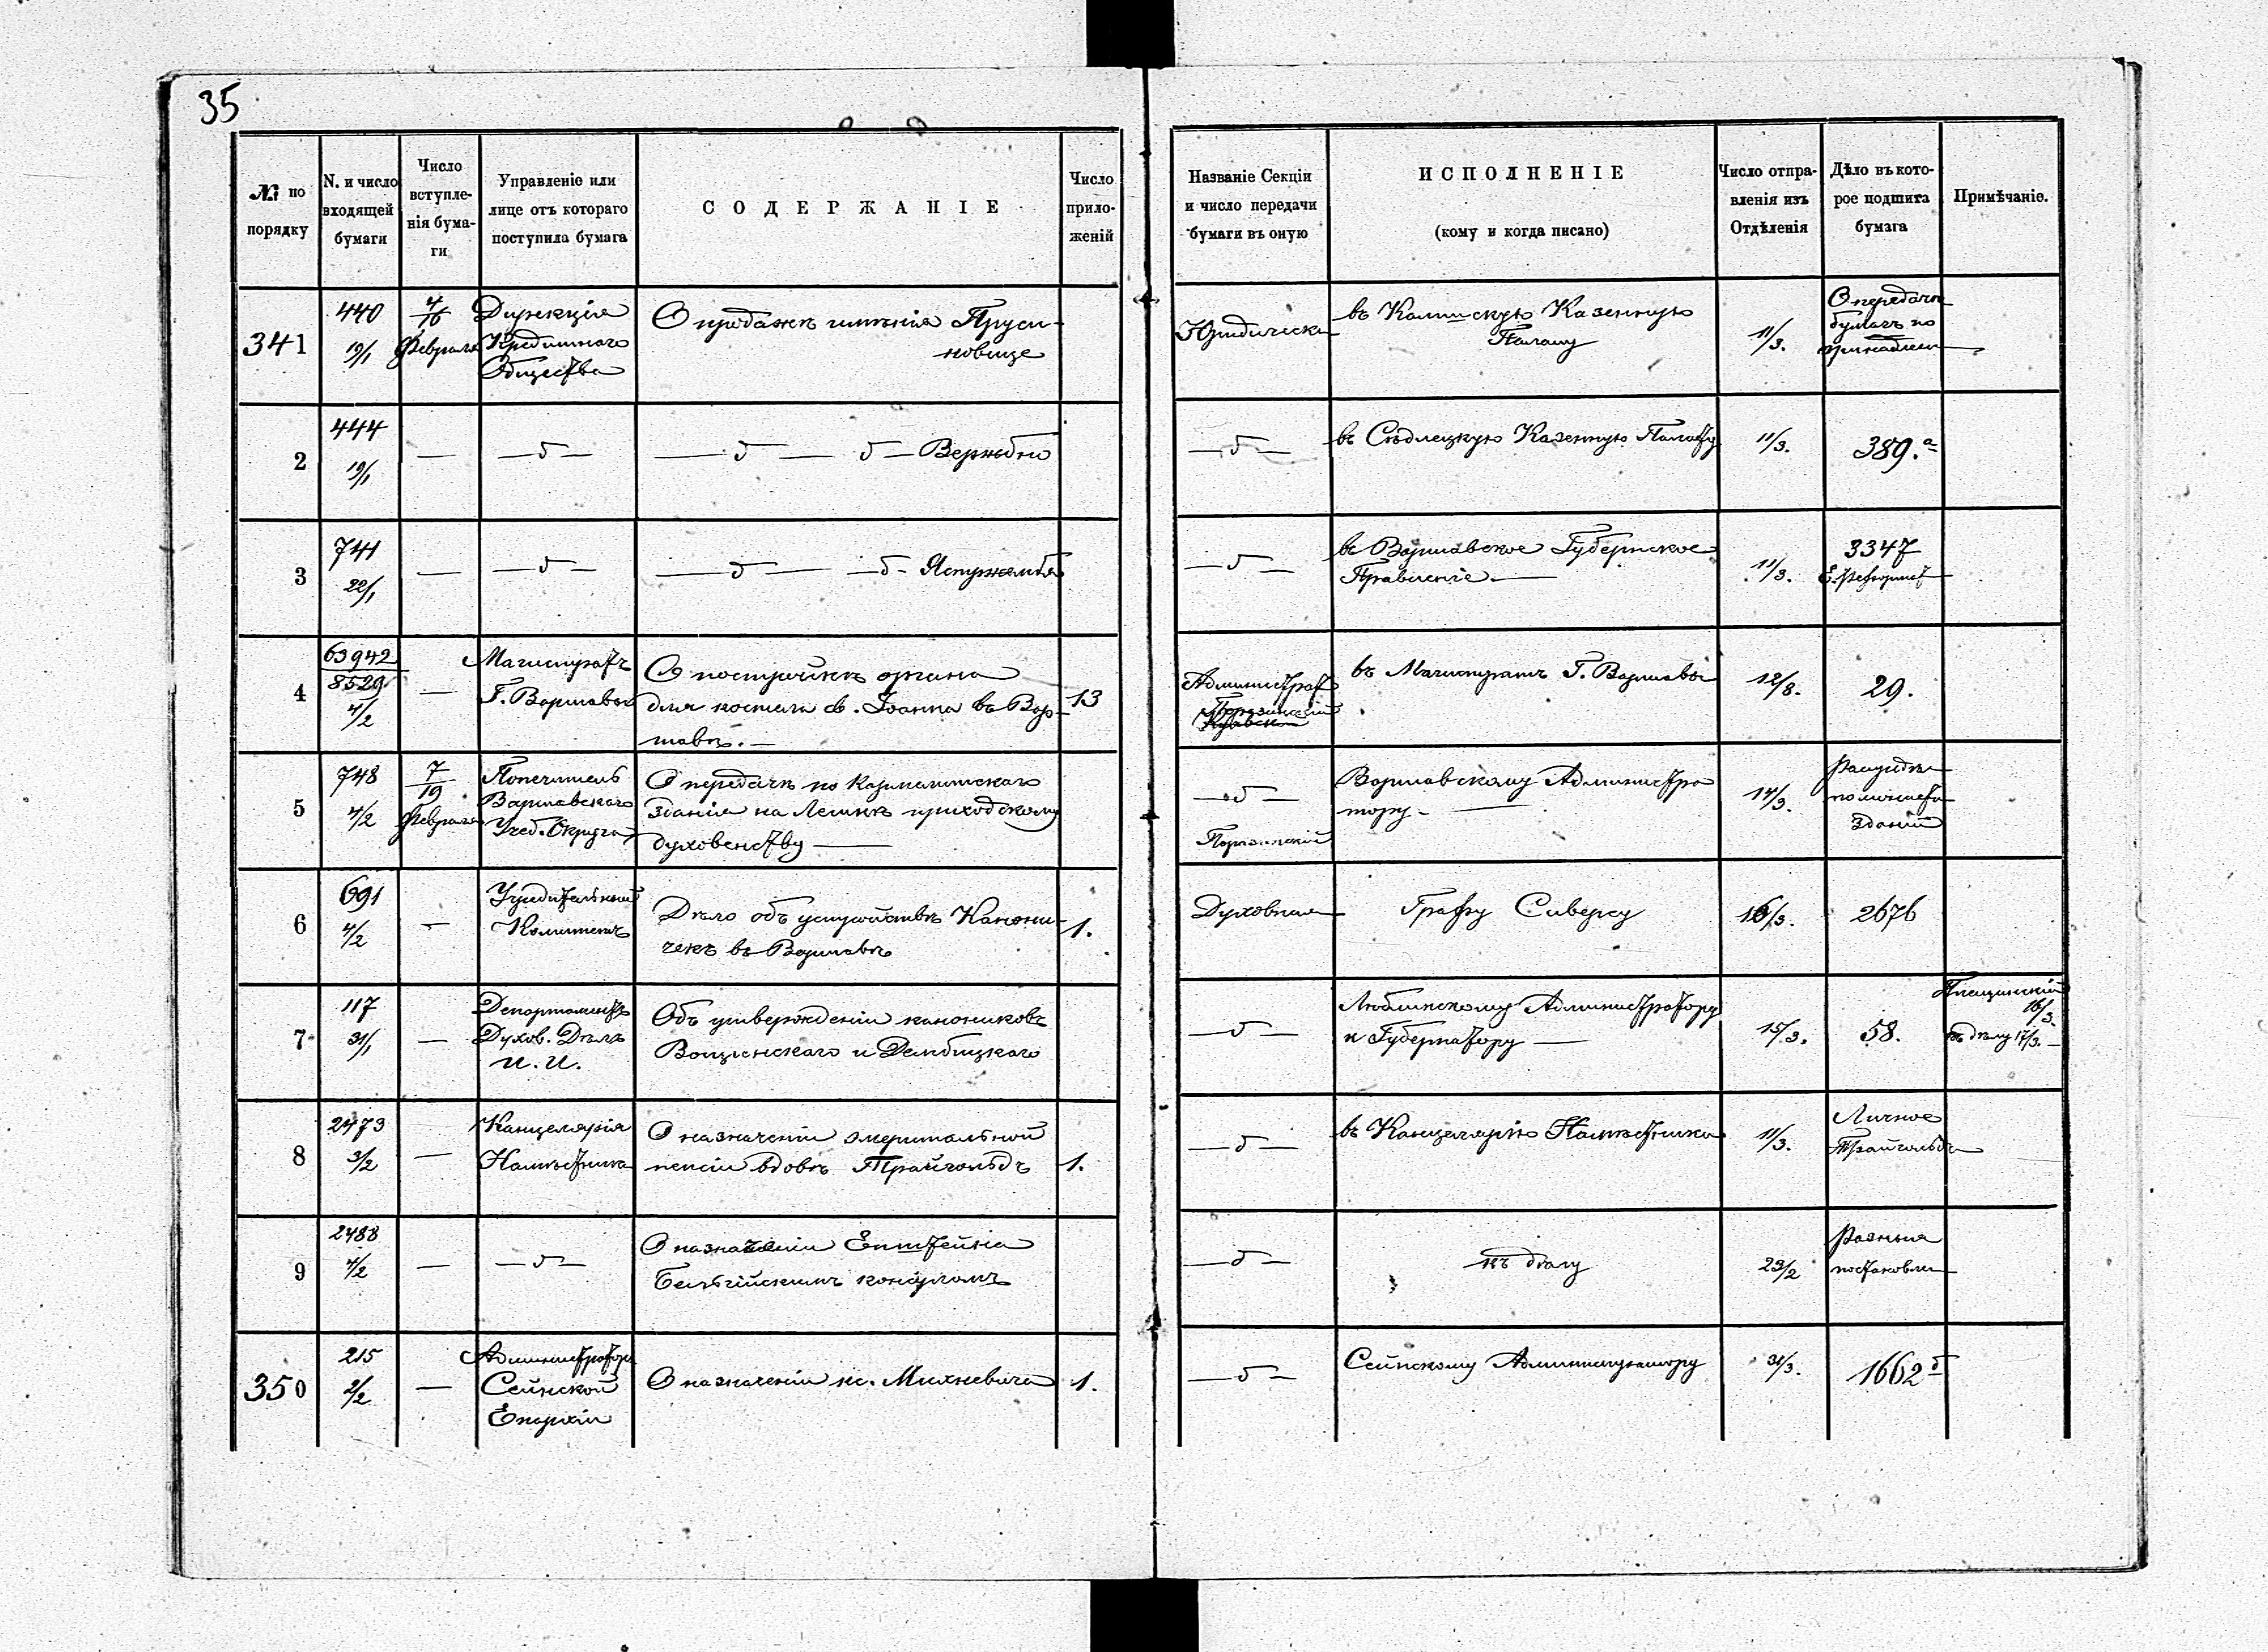 35
№ по порядку
N. и число входящей бумаги
Число вступленія бумаги
Управленіе или лице отъ котораго поступила бумага
СОДЕРЖАНІЕ
Число приложеній
Названіе Секціи и число передачи бумаги въ оную
ИСПОЛНЕНІЕ
(кому и когда писано)
Число отправленія изъ Отдѣленія
Дѣло въ которое подшита бумага
Примѣчаніе.
341
440
19/1
4/16
Февраля
Дирекція
Кредитнаго
Общества
О продажѣ имѣнія Пруси-
новице
Юридическая
въ Калишскую Казенную
Палату
11/3.
О передачѣ
бумагъ по
принадлеж
2
444
19/1
—
—б—
— б — б — Вержбно
—б—
въ Сѣдлецкую Казенную Палату
11/3.
389.а
3
741
22/1
—
—б—
— б — б — Ястружембя
—б—
въ Варшавское Губернское
Правленіе —
11/3.
3347
4
63942
8529
4/2
—
Магистратъ
Г. Варшавы
О постройкѣ органа
для костела св. Іоанна въ Вар-
шавѣ. —
13
Администрат
въ Магистратъ Г. Варшавы
12/8.
29.
5
748
4/2
7/19
Февраля
Попечитель
Варшавскаго
Учеб. Округа
О передачѣ по кармелитскаго
зданія на Лешнѣ приходскому
духовенству —
—б—
Варшавскому Администра
тору. —
14/3.
зданій
6
691
4/2
—
Учредительный
Комитетъ
Дѣло объ устройствѣ Канони-
чекъ въ Варшавѣ
1.
Духовная
Графу Сиверсу
16/3.
2676
7
117
31/1
—
Департаментъ
Духов. Дѣлъ
И. И.
Объ утвержденіи канониковъ
Вощинскаго и Дембицкаго
—б—
Люблинскому Администратору
и Губернатору —
15/3.
58.
16/3.
къ дѣлу 17/3. —
8
2473
3/2
—
Канцелярія
Намѣстника
О назначеніи эмеритальной
пенсіи вдовѣ Трайгольдъ
1.
—б—
въ Канцелярію Намѣстника
11/3.
Личное
Трайгольдъ
9
2488
4/2
—
—б—
О назначеніи Епштейна
Бельгійскимъ консуломъ
—б—
къ дѣлу
23/2
Разныя
постановле
350
215
2/2
—
Администраторъ
Сейнской
Епархіи
О назначеніи кс. Михневича
1.
—б—
Сейнскому Администратору
31/3.
1662 б